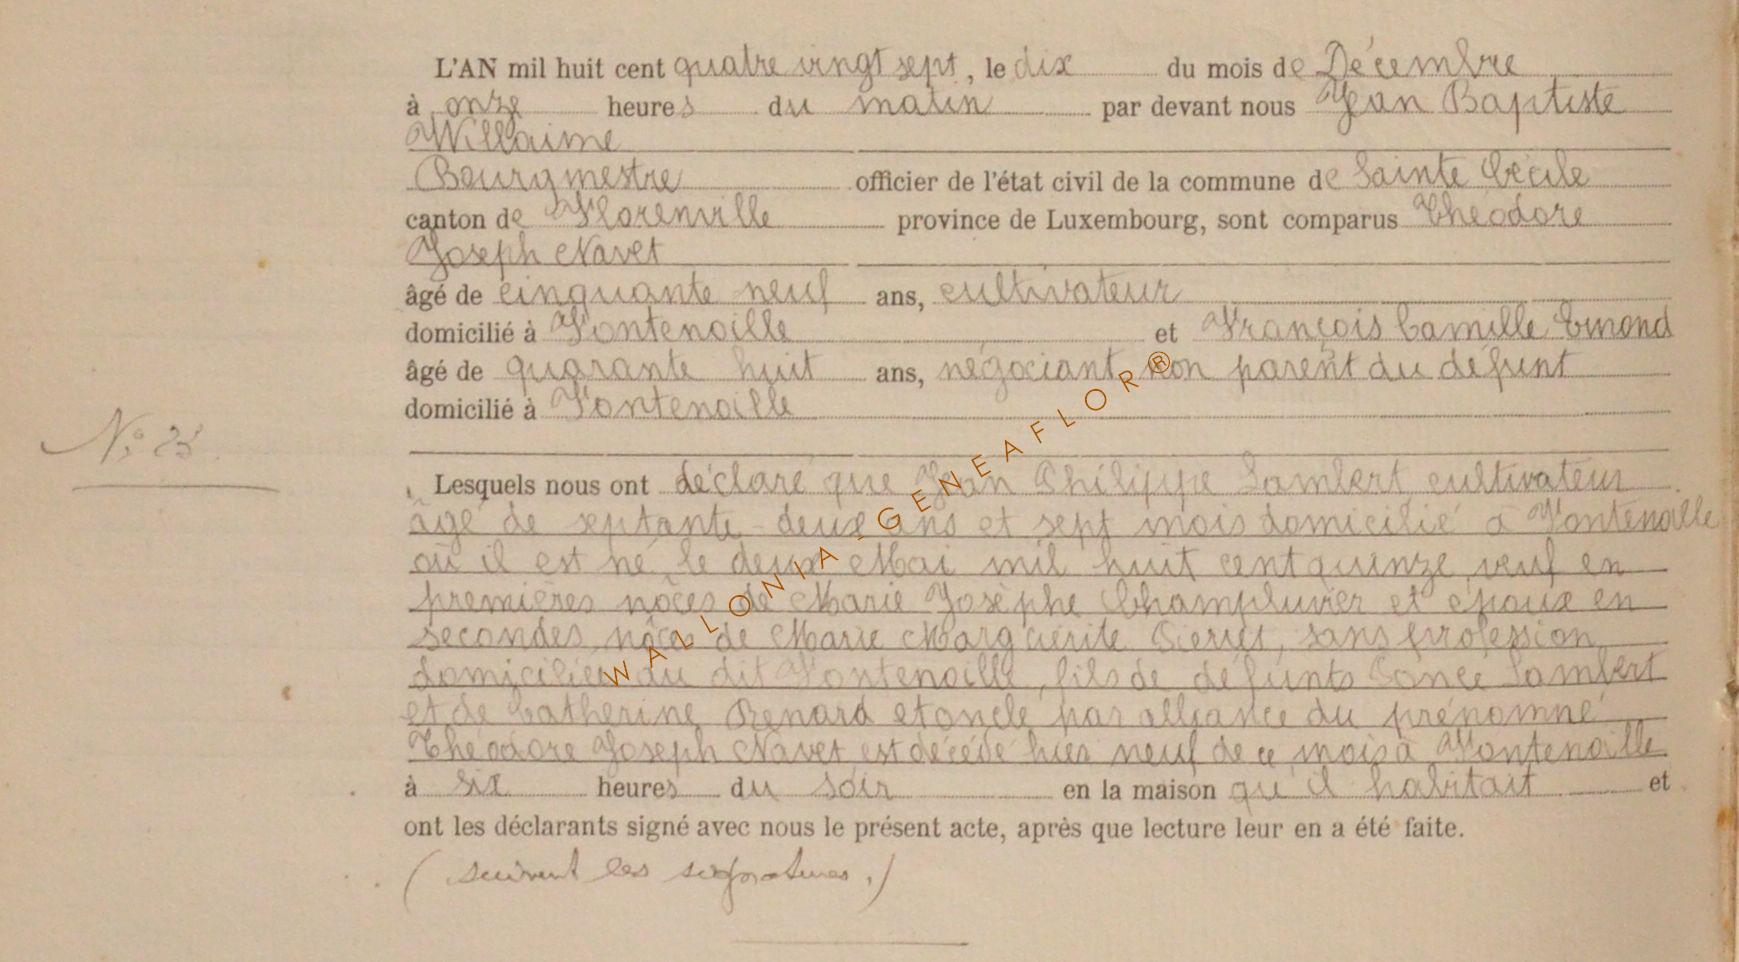 L'AN mil huit cent quatre vingt sept, le dix du mois de Décembre
à onze heures du matin par devant nous Jean Baptiste
Willaime
Bourgmestre officier de l'état civil de la commune de Sainte Cécile
canton de Florenville province de Luxembourg, sont comparus Théodore
Joseph Navet
âgé de cinquante neuf ans, cultivateur
domicilié à Fontenoille et François Camille Emond
âgé de quarante huit ans, négociant non parent du défunt
domicilié à Fontenoille
N° 25
Lesquels nous ont déclaré que Jean Philippe Lambert cultivateur
âgé de septante-deux ans et sept mois domicilié à Fontenoille
où il est né le deux Mai mil huit cent quinze veuf en
premières nôces de Marie Josèphe Champluvier et époux en
secondes nôces de Marie Marguerite Pierret, sans profession
domiciliée au dit Fontenoille, fils de défunts Lambert
et de Catherine Renard et oncle par alliance du prénommé
Théodore Joseph Navet est décédé hier neuf de ce mois à Fontenoille
à six heures du soir en la maison qu'il habitait et
ont les déclarants signé avec nous le présent acte, après que lecture leur en a été faite.
(suivent les signatures.)
WALLONIA-GENEAFLOR®